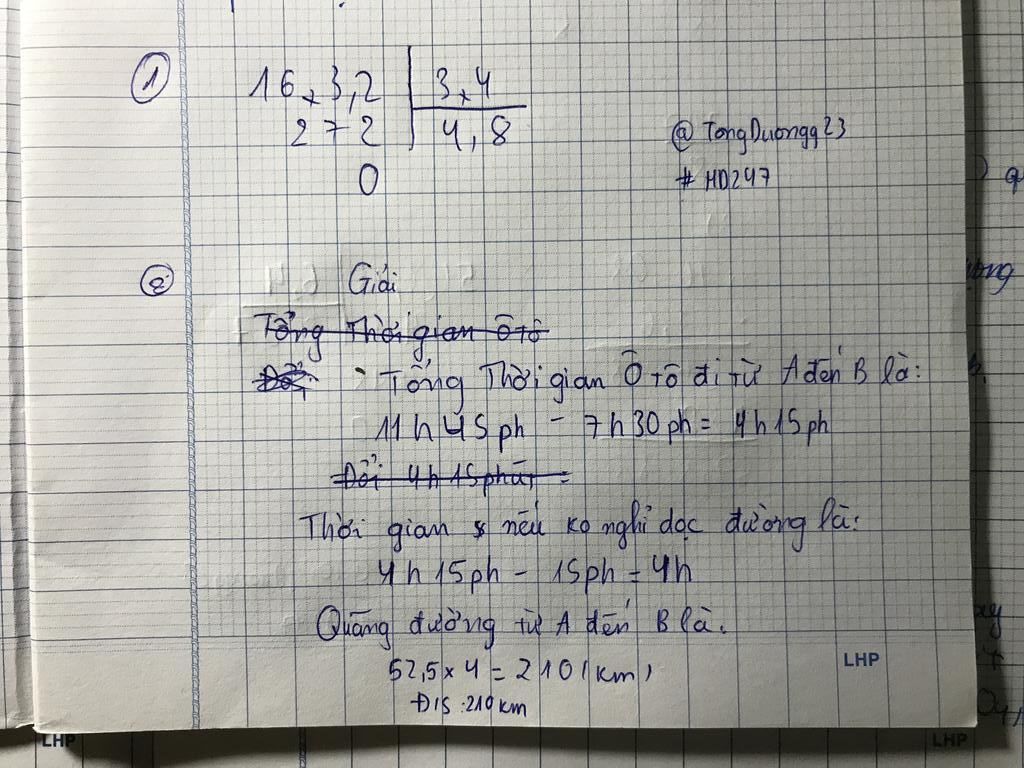 1 16,3,2 3,4
272 4,8
0
@TongDuongq23
#HD247
2 Giải
Tổng Thời gian Ô tô
Đổi: Tổng Thời gian Ô tô đi từ A đến B là:
11h45ph - 7h30ph = 4h15ph
Đổi 4h15phút =
Thời gian nếu ko nghỉ dọc đường là:
4h15ph - 15ph = 4h
Quãng đường từ A đến B là:
52,5 x 4 = 210 (km)
Đ/S: 210km
LHP
LHP LHP